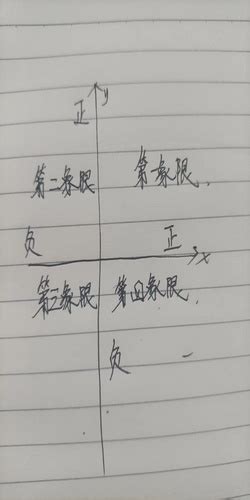 y
正
第二象限 第一象限.
负 正
x
第三象限 第四象限.
负